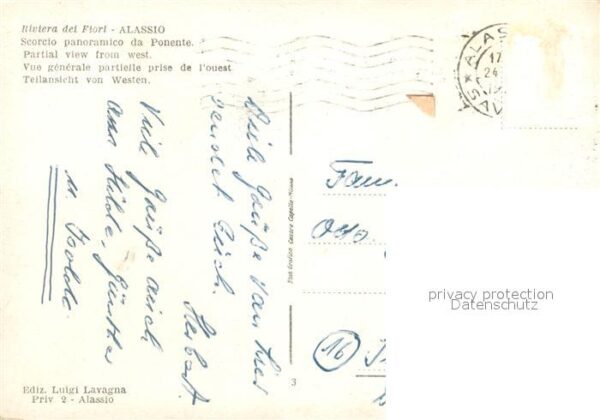 Riviera dei Fiori - ALASSIO
Scorcio panoramico da Ponente.
Partial view from west.
Vue générale partielle prise de l'ouest
Teilansicht von Westen.
ALAS
17
24
Viele Grüße von hier
sendet Euch
Herbert.
Viele Grüße auch
an Hilde, Günther
u. Isolde
Fam.
Otto
16
privacy protection
Datenschutz
3
Ediz. Luigi Lavagna
Priv 2 - Alassio